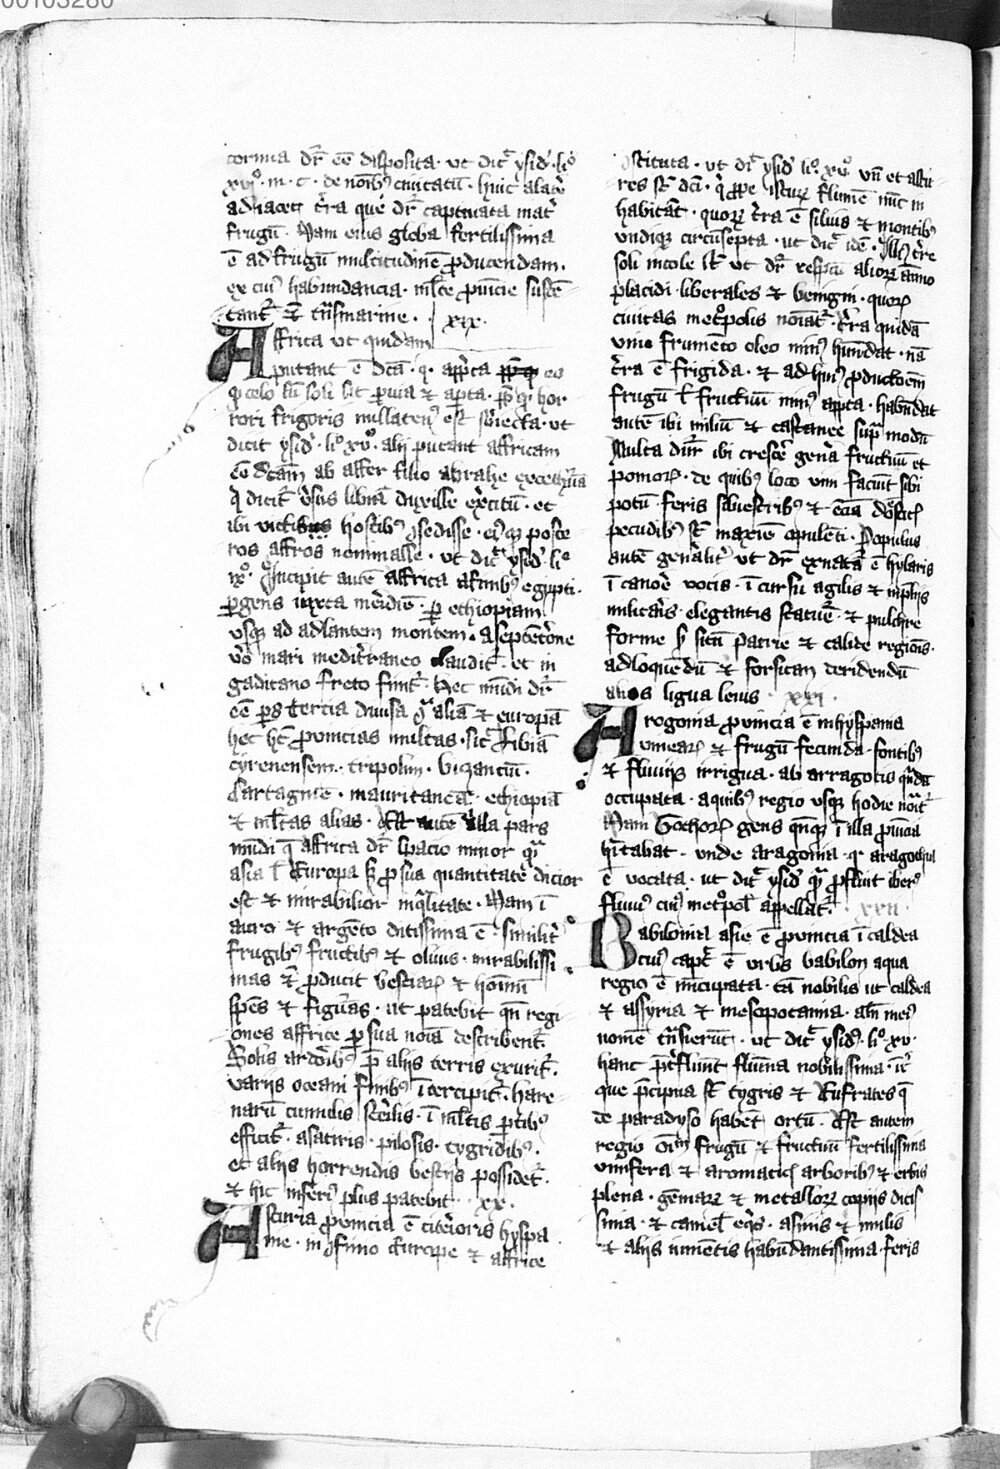 00103280
cornua dr̄ eē disposita · ut dic̄ ysid · li°
xv° · in · c · de noīb᷒ ciuitatū · huic alatē
adiacet t̄ra que dr̄ captiuata mat᷑
frugū · Nam eius gleba fertilissima
ē ad frugū multitudinē ꝓducendam ·
ex cui᷒ habundancia · ml̄te ꝓuincie sustē
tant᷑ et̄ t̄nsmarine · xix ·
Affrica ut quidam
putant ē dc̄a · q · ap̄ca eo
ꝙ celo soli sit ꝑuia et aꝑta · hor
rori frigoris nullaten᷒ est sbiecta · ut
dicit ysid · li° xv° · alij putant affricam
eē dc̄am ab affer filio abrahe ex cethura
q̄ dicit᷑ v̄sus libiā duxisse ex̄citū · et
ibi victis hostib᷒ ꝯsedisse · ei᷒q poste
ros affros nominasse · ut dic̄ ysid · li°
ix° · Incipit autē affrica a finib᷒ egypti ·
ꝑgens iuxta meridiē ꝑ ethiopiam
usq ad adlantem montem · a septētōne
v̄o mari medit̄raneo claudit᷑ · et in
gaditano freto finit᷑ · hec mūdi dr̄
eē ps tercia diuisa ꝯ aliā et europā
hec hꝫ ꝓuincias multas · sic libiā
cyrenensem · tripolim · bizanciū ·
Cartaginē · mauritaneā · ethiopiā
et ml̄tas alias · Est autē illa pars
mūdi q̄ affrica dr̄ spacio minor qͣ
asia l̄ Europa ꝑ sua quantitate dicior
est et mirabilior in q̄litate · Nam ī
auro et argēto ditissima ē · similit᷑
frugib᷒ fructib᷒ et oliuis · mirabilissi
mas et̄ ꝓducit bestiaꝝ et hoīnū
spēs et figuras · ut patebit qn̄ regi
ones affrice ꝑ sua noīa describent᷑
Solis ardorib᷒ p̄ alijs terris exurit᷑ ·
varijs oceani finib᷒ īt̄cipit᷑ · hare
narū cumulis st̄ilis · ī ml̄tis ꝑtib᷒
efficit᷑ · a satiris · pilosis · tygridib᷒ ·
et alijs horrendis bestijs possidet᷑ ·
et hic inferi᷒ plus patebit · xx ·
Asturia ꝓuincia ē cit̄ioris hyspa
nie · in ꝯfinio Europe et affrice
ꝯstituta · ut dic̄ ysid li° xv° vn̄ et astu
res st̄ dc̄i · q̄ ꝓpe isturꝝ flumē
habitāt · quoꝝ t̄ra ē siluis et montib᷒
undiq circūsepta · ut dic̄ idē · Illi᷒ t̄re
soli incole st̄ ut dr̄ respc̄u alioꝝ
placidi · liberales et benigni · quoꝝ
ciuitas met°polis noīat᷑ · t̄ra quidā
vino frumēto oleo min᷒ hūndat · nā
t̄ra ē frigida · et ad hui᷒ ꝓductōem
frugū l̄ fructuū min᷒ apta · habūdat
autē ibi miliū et castanee supͣ modū
Multa dūr̄ ibi cresc̄e gen̄a fructuū et
pomoꝝ · de quib᷒ loco vini faciūt sibi
potū · feris siluestrib᷒ et eciā dōstic᷒
pecudib᷒ st̄ maxīe opulēti · Populus
autē gen̄alit᷑ ut dr̄ ex natͣ ē hylaris
ī canoē vocis · ī cursu agilis et in plijs
militaris · elegantis statuē et pulchre
forme ꝓ situ patrie et calide regiōis ·
ad loquēdū et forsitan deridendū
alios ligua leuis · xxi ·
Arogonia ꝓuincia ē in hyspania
vineaꝝ et frugū fecunda · fontib᷒
et fluuijs irrigua · ab arragotis q̄dā
occupata · a quib᷒ regio usq hodie noīt᷑
Nam Gothoꝝ gens qn̄q ī illa ꝓuīcia
h̄itabat · unde aragonia · q aragothia
ē vocata · ut dic̄ ysid quͣ ꝓfluit iber᷒
fluui᷒ cui᷒ met°pol̄ appellat᷑ · xxii
Babilonia asie ē ꝓuincia ī caldea
cui᷒ capt᷑ ē urbs babilon a qua
regio ē nūcupata · tā nobilis ut caldea
et assyria et mesopotamia · aln̄ in ei᷒
nomē t̄nsierūt · ut dic̄ ysid᷒ · li° xv ·
hanc p̄t̄fluūnt flumīa nobilissima · īt̄
que p̄cipua st̄ tygris et Eufrates q̄
de paradyso habēt ortū · Est autem
regio oīm frugū et fructuū fertilissima
vinifera et aromatic᷒ arborib᷒ et erbis
plena · gemaꝝ et metalloꝝ copijs ditis
sima · et camel᷒ eq̄s · asinis et mulis
et alijs iumētis habūdantissima · feris